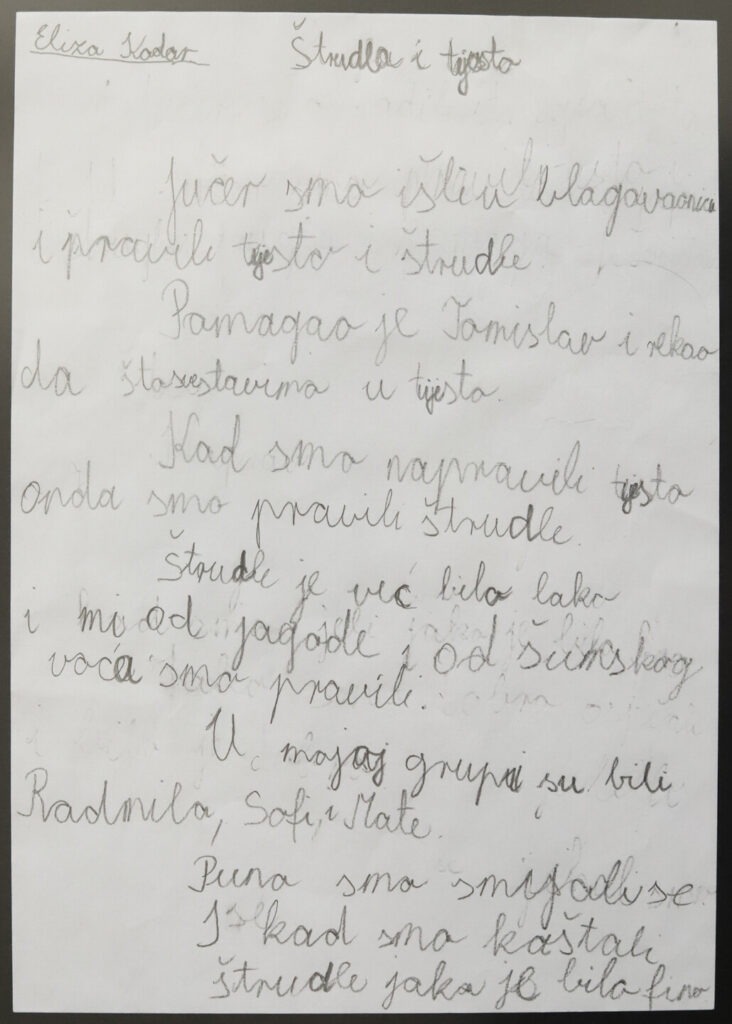 Eliza Kadar
Štrudla i tijesto
Jučer smo išli u blagavaonicu
i pravili tijesto i štrudle
Pamagao je Tomislav i rekao
da što sestavimo u tijesto.
Kad smo napravili tijesto
onda smo pravili štrudle.
Štrudle je već bilo lako
i mi od jagode i od šumskog
voća smo pravili.
U mojoj grupi su bili
Radmila, Sofi, i Mate.
Puno smo smijali se
I kad smo kaštali
štrudle jako je bilo fino